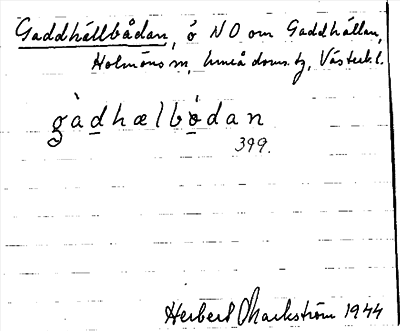 Gaddhällbådan, ö NO om Gaddhällan,
Holmöns sn, Umeå doms. tg, Västerb. l.
gàdhælbòdan
399.
Herbert Markström 1944